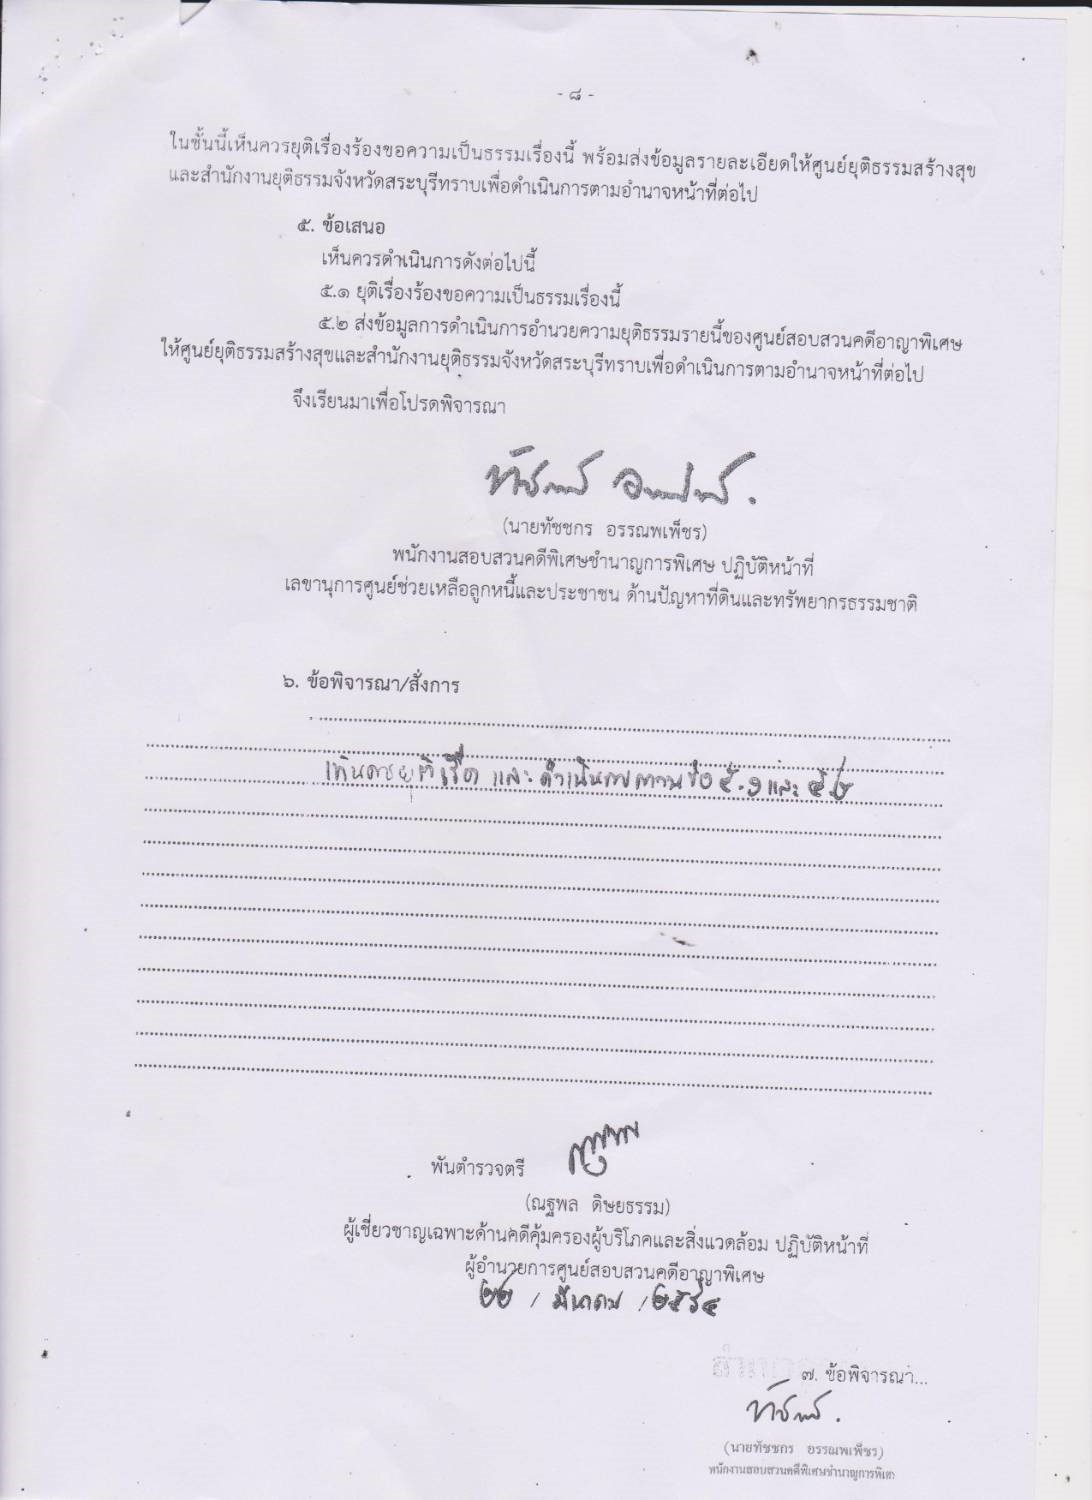 - ๘ -
ในชั้นนี้เห็นควรยุติเรื่องร้องขอความเป็นธรรมเรื่องนี้ พร้อมส่งข้อมูลรายละเอียดให้ศูนย์ยุติธรรมสร้างสุข
และสำนักงานยุติธรรมจังหวัดสระบุรีทราบเพื่อดำเนินการตามอำนาจหน้าที่ต่อไป
๕. ข้อเสนอ
เห็นควรดำเนินการดังต่อไปนี้
๕.๑ ยุติเรื่องร้องขอความเป็นธรรมเรื่องนี้
๕.๒ ส่งข้อมูลการดำเนินการอำนวยความยุติธรรมรายนี้ของศูนย์สอบสวนคดีอาญาพิเศษ
ให้ศูนย์ยุติธรรมสร้างสุขและสำนักงานยุติธรรมจังหวัดสระบุรีทราบเพื่อดำเนินการตามอำนาจหน้าที่ต่อไป
จึงเรียนมาเพื่อโปรดพิจารณา
(นายทัชชกร อรรณพเพ็ชร)
พนักงานสอบสวนคดีพิเศษชำนาญการพิเศษ ปฏิบัติหน้าที่
เลขานุการศูนย์ช่วยเหลือลูกหนี้และประชาชน ด้านปัญหาที่ดินและทรัพยากรธรรมชาติ
๖. ข้อพิจารณา/สั่งการ
เห็นควรยุติเรื่อง และดำเนินการตามข้อ ๕.๑ และ ๕.๒
พันตำรวจตรี
(ณฐพล ดิษยธรรม)
ผู้เชี่ยวชาญเฉพาะด้านคดีคุ้มครองผู้บริโภคและสิ่งแวดล้อม ปฏิบัติหน้าที่
ผู้อำนวยการศูนย์สอบสวนคดีอาญาพิเศษ
๒๒ / มีนาคม / ๒๕๕๔
๗. ข้อพิจารณา...
(นายทัชชกร อรรณพเพ็ชร)
พนักงานสอบสวนคดีพิเศษชำนาญการพิเศ